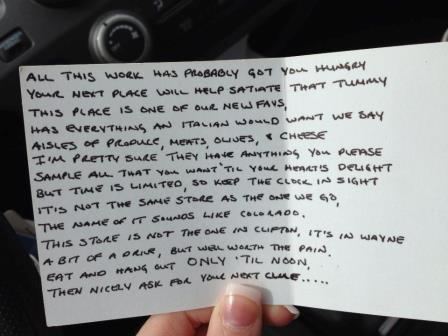 ALL THIS WORK HAS PROBABLY GOT YOU HUNGRY
YOUR NEXT PLACE WILL HELP SATIATE THAT TUMMY
THIS PLACE IS ONE OF OUR NEW FAVS,
HAS EVERYTHING AN ITALIAN WOULD WANT WE SAY
AISLES OF PRODUCE, MEATS, OLIVES, & CHEESE
I'M PRETTY SURE THEY HAVE ANYTHING YOU PLEASE
SAMPLE ALL THAT YOU WANT 'TIL YOUR HEART'S DELIGHT
BUT TIME IS LIMITED, SO KEEP THE CLOCK IN SIGHT
IT'S NOT THE SAME STORE AS THE ONE WE GO,
THE NAME OF IT SOUNDS LIKE COLORADO.
THIS STORE IS NOT THE ONE IN CLIFTON, IT'S IN WAYNE
A BIT OF A DRIVE, BUT WELL WORTH THE PAIN.
EAT AND HANG OUT ONLY 'TIL NOON,
THEN NICELY ASK FOR YOUR NEXT CLUE.....